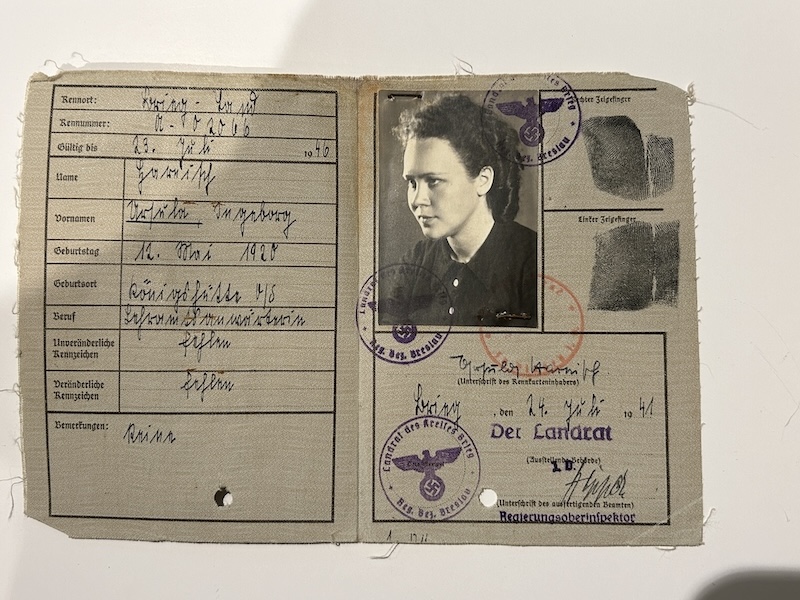 Kennort: Brieg - Land
Kennummer: A-00266
Gültig bis 23. Juli 1946
Name Harnisch
Vornamen Ursula Ingeborg
Geburtstag 12. Mai 1920
Geburtsort Königshütte O/S
Beruf Lehramtsanwärterin
Unveränderliche Kennzeichen fehlen
Veränderliche Kennzeichen fehlen
Bemerkungen: Keine
Reg. Bez. Breslau
Rechter Zeigefinger
Linker Zeigefinger
Landrat des Kreises Brieg
Reg. Bez. Breslau
Ursula Harnisch.
(Unterschrift des Kennkarteninhabers)
Brieg, den 24. Juli 1941
Der Landrat
(Ausstellende Behörde)
Landrat des Kreises Brieg
Reg. Bez. Breslau
(Unterschrift des ausfertigenden Beamten)
Regierungsoberinspektor